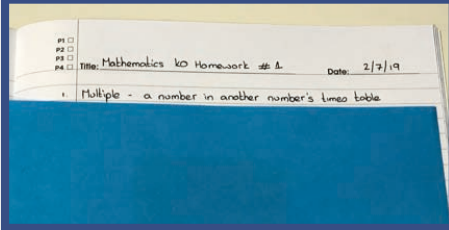 P1 □
P2 □
P3 □
P4 □ Title: Mathematics KO Homework # 1 Date: 2/7/19
1. Multiple - a number in another number's times table